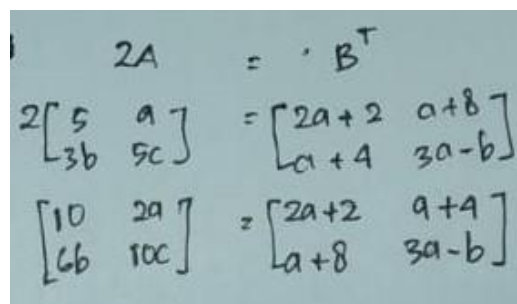 2A = · B^T
2[5 a; 3b 5c] = [2a+2 a+8; a+4 3a-b]
[10 2a; 6b 10c] = [2a+2 a+4; a+8 3a-b]